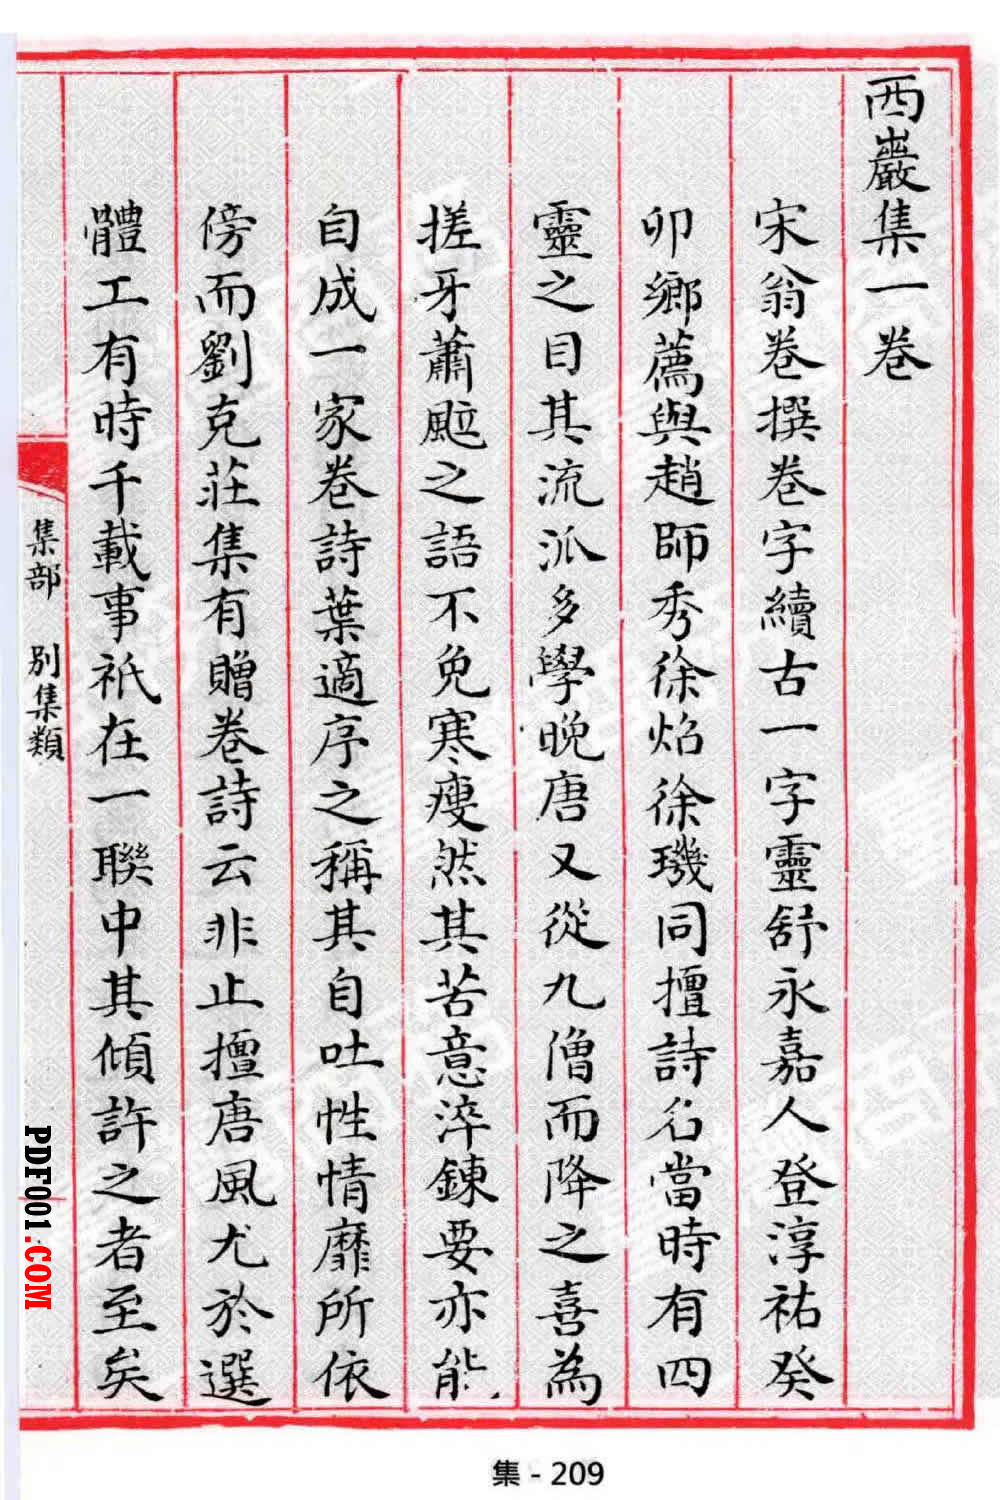 西巖集一卷
宋翁卷撰卷字續古一字靈舒永嘉人登淳祐癸
卯鄉薦與趙師秀徐焰徐璣同擅詩名當時有四
靈之目其流派多學晚唐又從九僧而降之喜為
搓牙蕭颭之語不免寒瘦然其苦意淬鍊要亦能
自成一家卷詩葉適序之稱其自吐性情靡所依
傍而劉克莊集有贈卷詩云非止擅唐風尤於選
體工有時千載事祇在一聯中其傾許之者至矣
集部 別集類
PDF001.COM
集 - 209